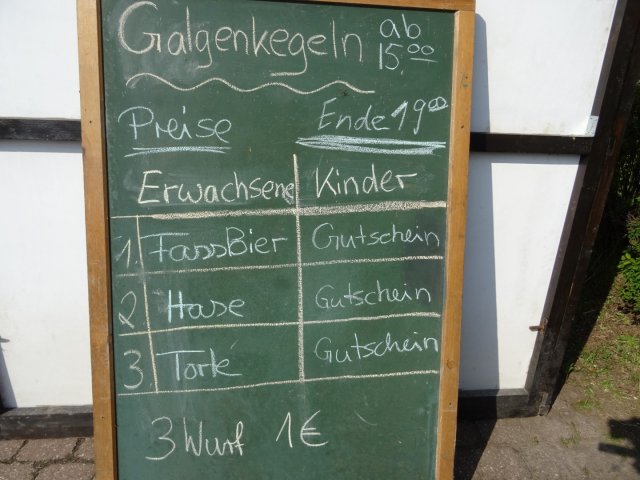 Galgenkegeln ab 15.00
Preise Ende 19 00
Erwachsene Kinder
1. FassBier Gutschein
2 Hase Gutschein
3. Torte Gutschein
3 Wurf 1€